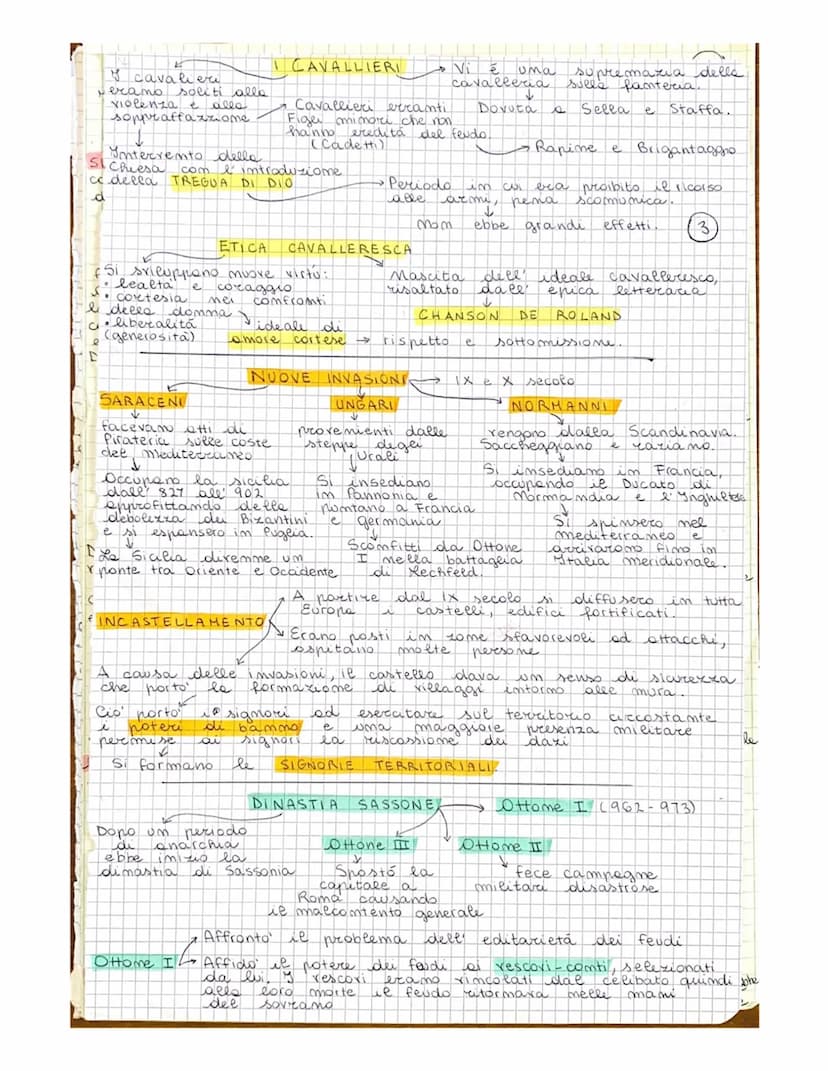 I CAVALLIERI
I cavalieri
erano soliti alla
violenza e alla
sopraffazzione
Cavallieri erranti
Figli minori che non
hanno eredità del feudo.
(Cadetti)
Vi é una supremazia della
cavalleria sulla fanteria.
Dovuta a Sella e Staffa.
Rapine e Brigantaggio
Intervento della
Chiesa con l'introduzione
della TREGUA DI DIO
Periodo in cui era proibito il ricorso
alle armi, pena scomunica.
non ebbe grandi effetti.
3
ETICA CAVALLERESCA
Si sviluppano nuove virtú:
• lealtà e coraggio
• cortesia nei confronti
della donna
• liberalità
(generosità)
ideali di
amore cortese → rispetto e sottomissione.
Nascita dell'ideale cavalleresco,
risaltato dall'epica letteraria
CHANSON DE ROLAND
NUOVE INVASIONI → IX e X secolo
SARACENI
UNGARI
NORMANNI
facevan atti di
Pirateria sulle coste
del mediterraneo
Occupano la sicilia
dall' 827 all' 902
approfittando della
debolezza dei Bizantini
e si espansero in Puglia.
La Sicilia divenne un
ponte tra Oriente e Occidente
provenienti dalle
steppe degli
Urali
Si insediano
in Pannonia e
puntano a Francia
e germania
Sconfitti da Ottone
I nella battaglia
di Lechfeld.
vengono dalla Scandinavia.
Saccheggiano e variano.
Si insediano in Francia,
occupando il Ducato di
Normandia e l'Inghilterra
Si spinsero nel
mediterraneo e
arrivarono fino in
Italia meridionale.
INCASTELLAMENTO
A partire dal IX secolo si diffusero in tutta
Europa i castelli, edifici fortificati.
Erano posti in zone sfavorevoli ad attacchi,
ospitano molte persone
A causa delle invasioni, il castello dava un senso di sicurezza
che portò la formazione di villaggi intorno alle mura.
Ció portó i signori ad esercitare sul territorio circostante
i poteri di banno e una maggiore presenza militare
permise ai signori la riscossione dei dazi
Si formano le SIGNORIE TERRITORIALI.
DINASTIA SASSONE → Ottone I (962-973)
Dopo un periodo
di anarchia
ebbe inizio la
dinastia di Sassonia
Ottone III
Spostó la
capitale a
Roma causando
il malcontento generale
Ottone II
fece campagne
militari disastrose
Ottone I
Affrontó il problema dell' editarietà dei feudi
Affidó il potere dei feudi ai vescovi-conti, selezionati
da lui. I vescovi erano vincolati dal celibato quindi
alla loro morte il feudo ritornava nelle mani
del sovrano